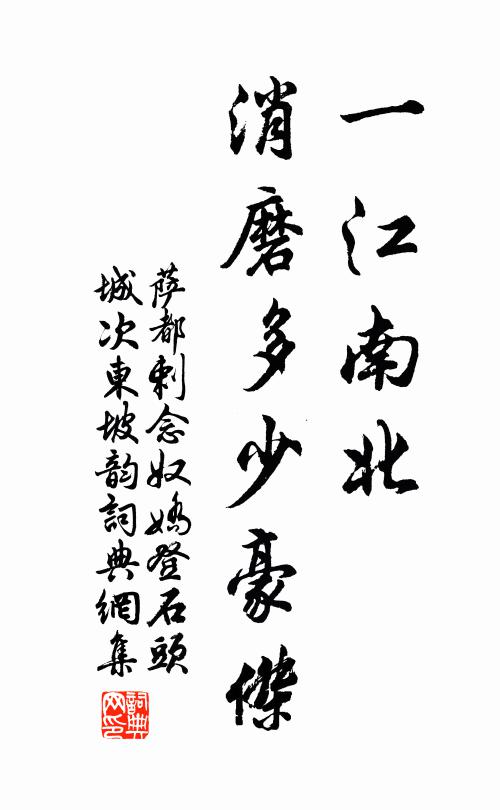 一江南北
消磨多少豪傑
薩都剌念奴嬌登石頭
城次東坡韵詞典網集
詞典網印